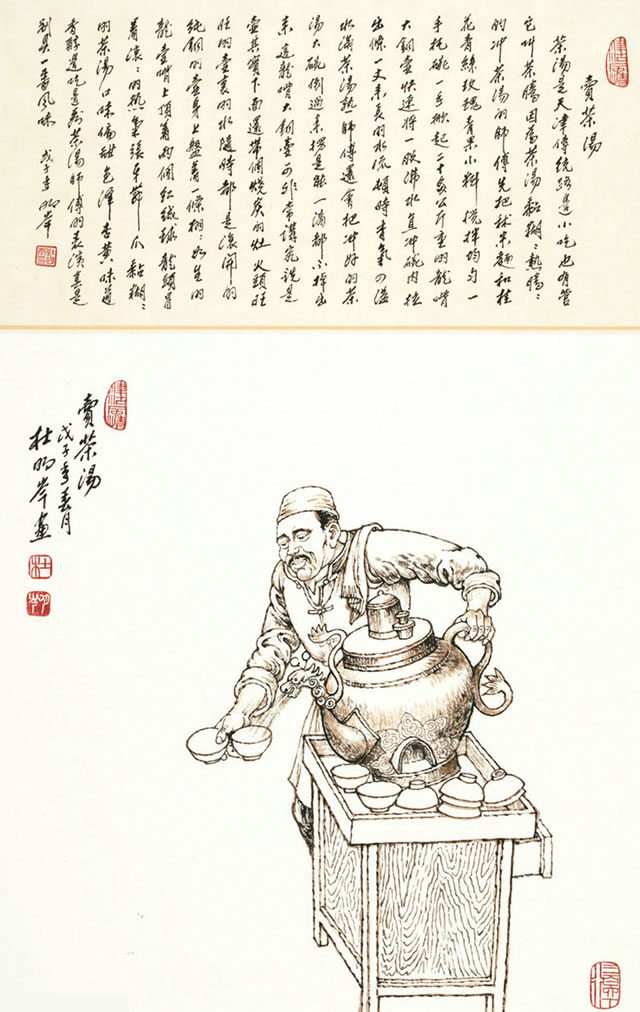 賣茶湯
茶湯是天津傳統路邊小吃也有管
它叫茶膓因為茶湯黏糊糊熱膓膓
的冲茶湯的師傅先把秫米麵和桂
花青絲玫瑰青果小料攪拌均匀一
手托碗一手掀起二十多公斤重的龍嘴
大銅壺快速將一股沸水直冲碗内拉
出條一丈来長的水流頓時香氣四溢
水滿茶湯熟師傅還會把冲好的茶
湯大碗倒過来楞是能一滴都不掉出
来這龍嘴大銅壺可非常講究說是
壺其實下面還帶個燒炭的灶火頭旺
旺的壺裏的水隨時都是滾開的
純銅的壺身上盤着一條栩栩如生的
龍壺嘴上頂着兩個紅絨球龍頭冒
着滾滾的熱氣張牙舞爪黏糊糊
的茶湯口味偏甜色澤杏黄味道
香醇還吃是看茶湯師傅的表演真是
别具一番風味 戊子年明岑
賣茶湯
戊子年春月
杜明岑畫